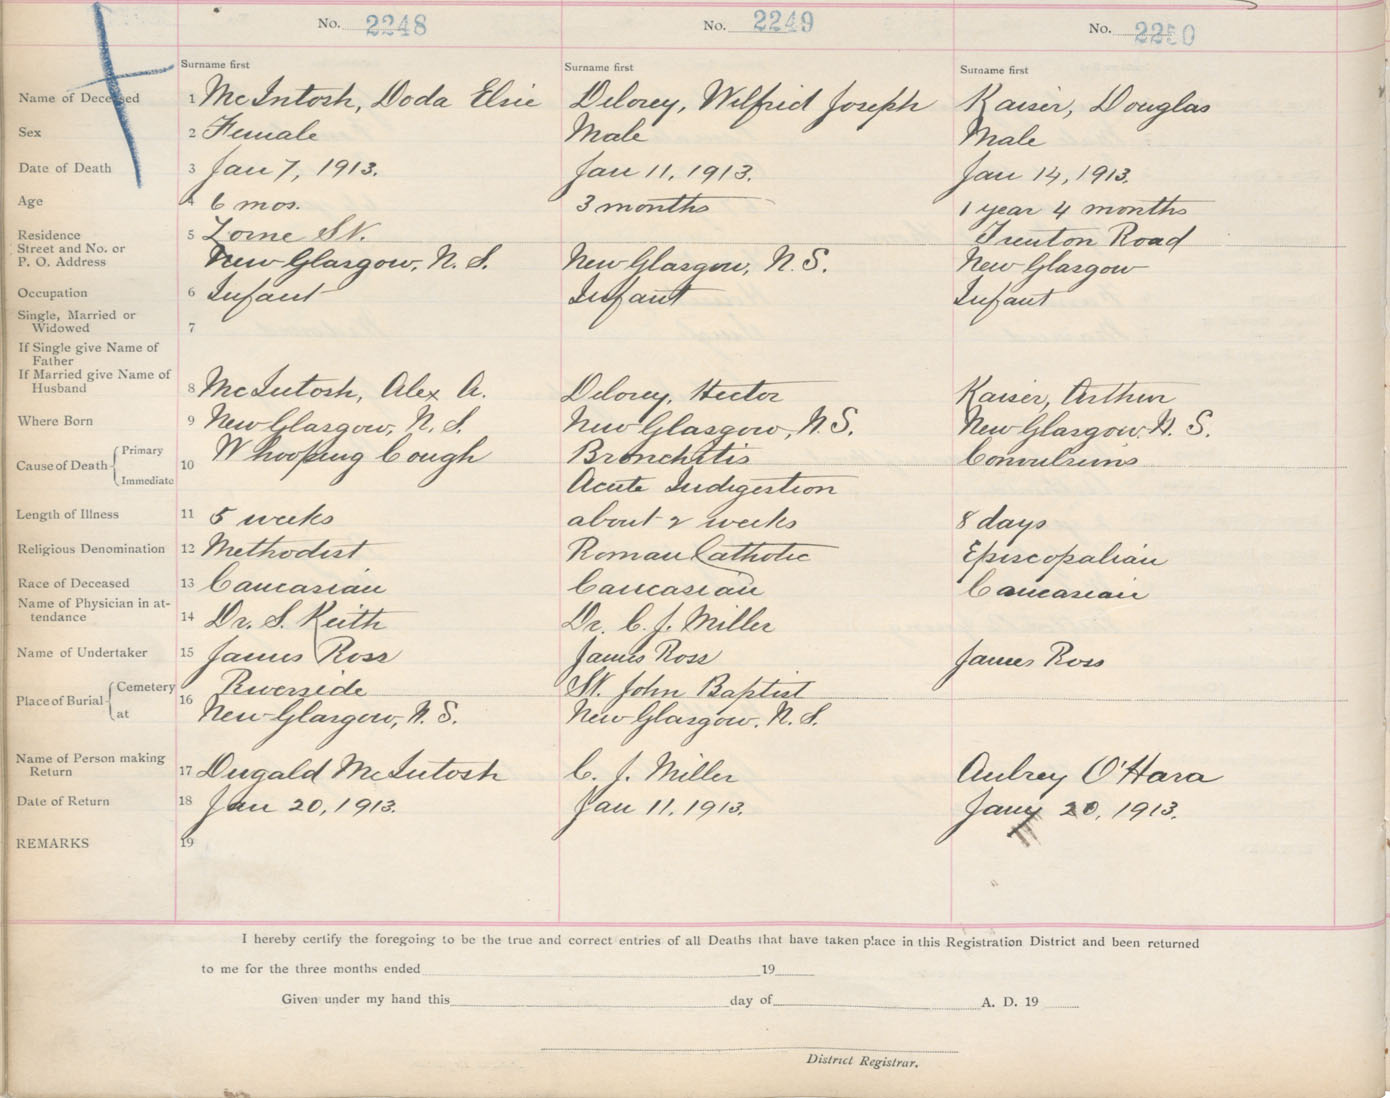 No. 2248 No. 2249 No. 2250
Surname first Surname first Surname first
Name of Deceased 1 McIntosh, Doda Elsie Delorey, Wilfrid Joseph Kaiser, Douglas
Sex 2 Female Male Male
Date of Death 3 Jan 7, 1913. Jan 11, 1913. Jan 14, 1913.
Age 4 6 mos. 3 months 1 year 4 months
Residence 5 Lorne St. Trenton Road
Street and No. or
P. O. Address New Glasgow, N. S. New Glasgow, N. S. New Glasgow
Occupation 6 Infant Infant Infant
Single, Married or
Widowed 7
If Single give Name of
Father
If Married give Name of
Husband 8 McIntosh, Alex A. Delorey, Hector Kaiser, Arthur
Where Born 9 New Glasgow, N. S. New Glasgow, N. S. New Glasgow N. S.
Cause of Death Primary 10 Whooping Cough Bronchitis Convulsions
Immediate Acute Indigestion
Length of Illness 11 5 weeks about 2 weeks 8 days
Religious Denomination 12 Methodist Roman Catholic Episcopalian
Race of Deceased 13 Caucasian Caucasian Caucasian
Name of Physician in at-
tendance 14 Dr. S. Keith Dr. C. J. Miller
Name of Undertaker 15 James Ross James Ross James Ross
Place of Burial Cemetery 16 Riverside St. John Baptist
at New Glasgow, N. S. New Glasgow, N. S.
Name of Person making
Return 17 Dugald McIntosh C. J. Miller Aubrey O'Hara
Date of Return 18 Jan 20, 1913. Jan 11, 1913. Jany 20, 1913.
REMARKS 19
I hereby certify the foregoing to be the true and correct entries of all Deaths that have taken place in this Registration District and been returned
to me for the three months ended 19
Given under my hand this day of A. D. 19
District Registrar.